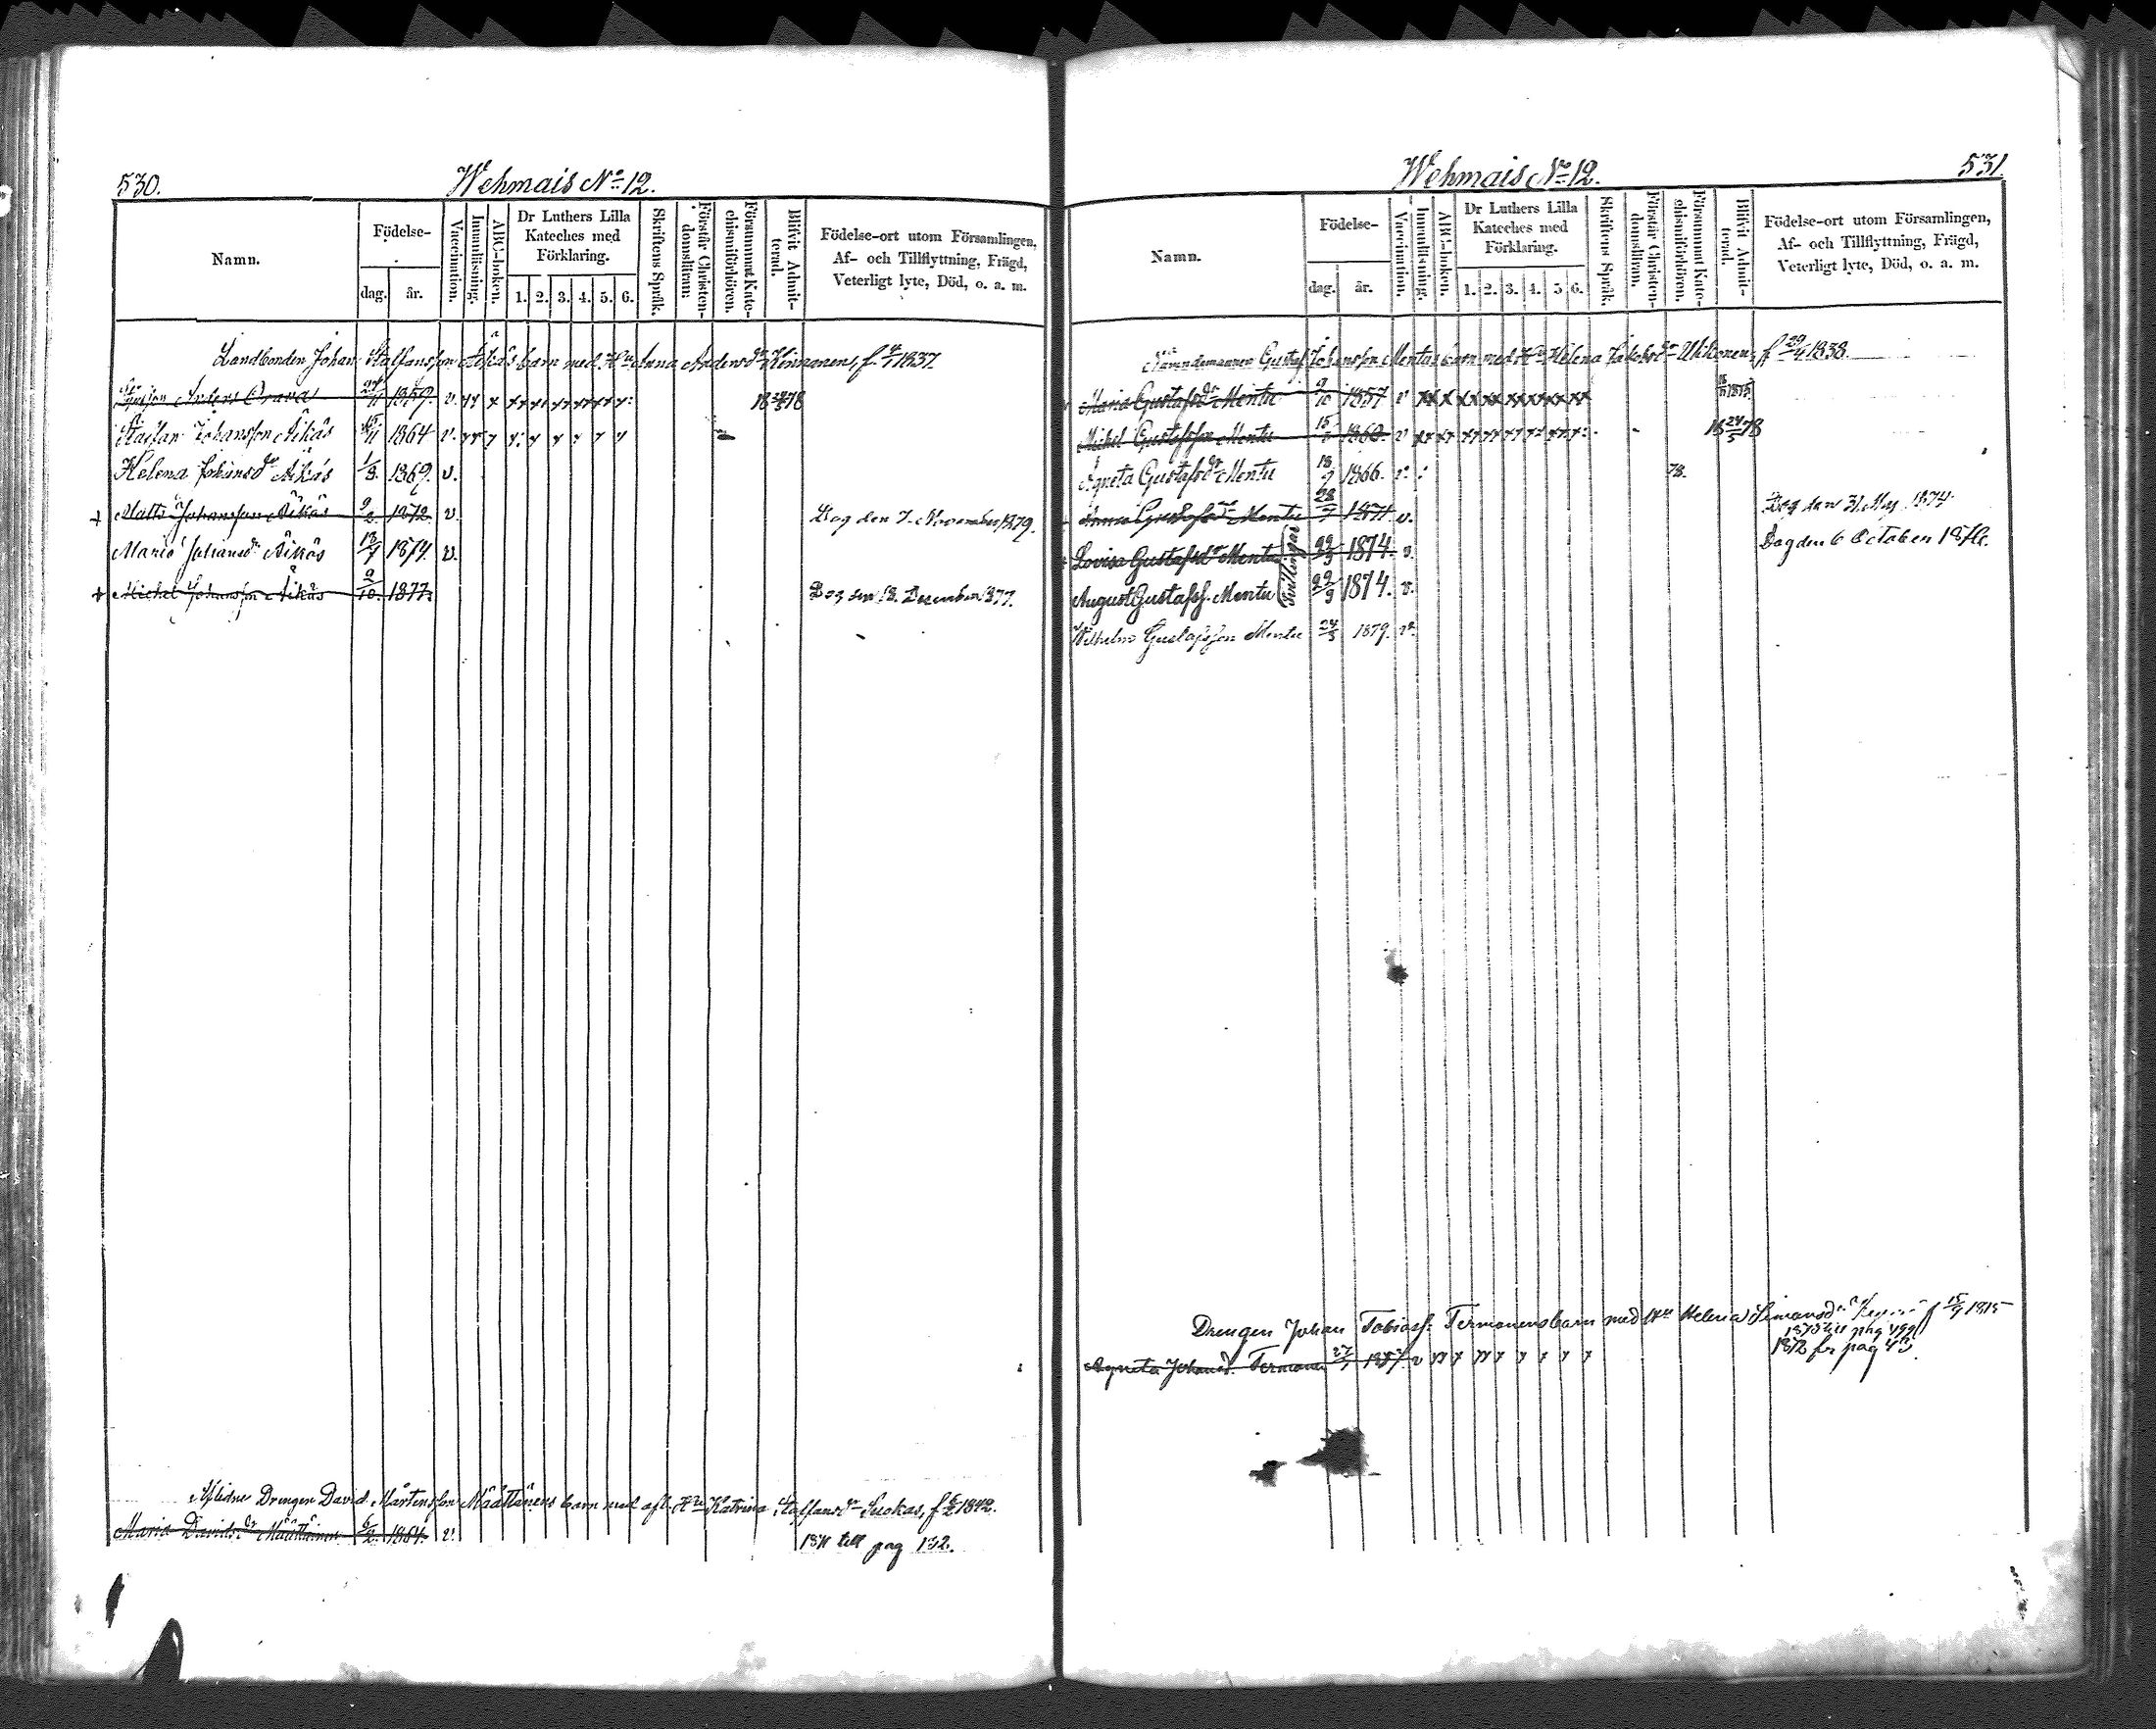 530.
Wehmais No 12.
Namn.
Födelse-
dag.
år.
Vaccination.
Innanläsning.
ABC-boken.
Dr Luthers Lilla
Kateches med
Förklaring.
1. 2. 3. 4. 5. 6.
Skriftens Språk.
Förstår Christen-
domsläran:
Försummat Kate-
chismiförhören.
Blifvit Admit-
terad.
Födelse-ort utom Församlingen,
Af- och Tillflyttning, Frägd,
Veterligt lyte, Död, o. a. m.
Landbonden Johan Staffansson Äikäs barn med Hu Anna Andersdr f. 1837.
Anders Orava 1859. v. 18 24/5 78
Staffan Johansson Äikäs 15/11 1864 v.
Helena Johansdr Äikäs 1/8. 1869. v.
+ Matts Johansson Äikäs 9/2. 1872. v. Dog den 7. November 1879.
Maria Johansdr Äikäs 18/7 1874. v.
+ Michel Johansson Äikäs 9/10. 1877. Dog den 18. December 1877.
Aflidne Drengen David Mårtensson Määttänens barn med afl. Hu Katrina Staffansdr Suokas, f. 1842.
Maria Davidsdr Määttäinen 6/2. 1864. v. till pag 132.
Wehmais No 12.
531.
Namn.
Födelse-
dag.
år.
Vaccination.
Innanläsning.
ABC-boken.
Dr Luthers Lilla
Kateches med
Förklaring.
1. 2. 3. 4. 5 6.
Skriftens Språk.
Förstår Christen-
domsläran.
Försummat Kate-
chismiförhören.
Blifvit Admit-
terad.
Födelse-ort utom Församlingen,
Af- och Tillflyttning, Frägd,
Veterligt lyte, Död, o. a. m.
Nämndemannen Gustaf Johansson Mentus barn med Hu Helena Jakobsdr Ukkonen, f. 29/4 1838.
Maria Gustafsdr Mentu 9/10 1857 v
Michel Gustafsson Mentu 1860. v 18 24/5 78
Agneta Gustafsdr Mentu 1866. v. 78.
Anna Gustafsdr Mentu 28/7 1871. v. Dog den 31. Maj 1874.
Lovisa Gustafsdr Mentu Tvillingar 29/9 1874. v. Dog den 6 October
August Gustafss. Mentu 29/9 1874. v.
Wilhelm Gustafsson Mentu 24/5 1879. v.
Drengen Johan Tobiass: Termonens barn med Hu Helena Simonsdr f 15/9 1815
Agneta Johansd. Termonen 27/7 v
1872 fr pag 43